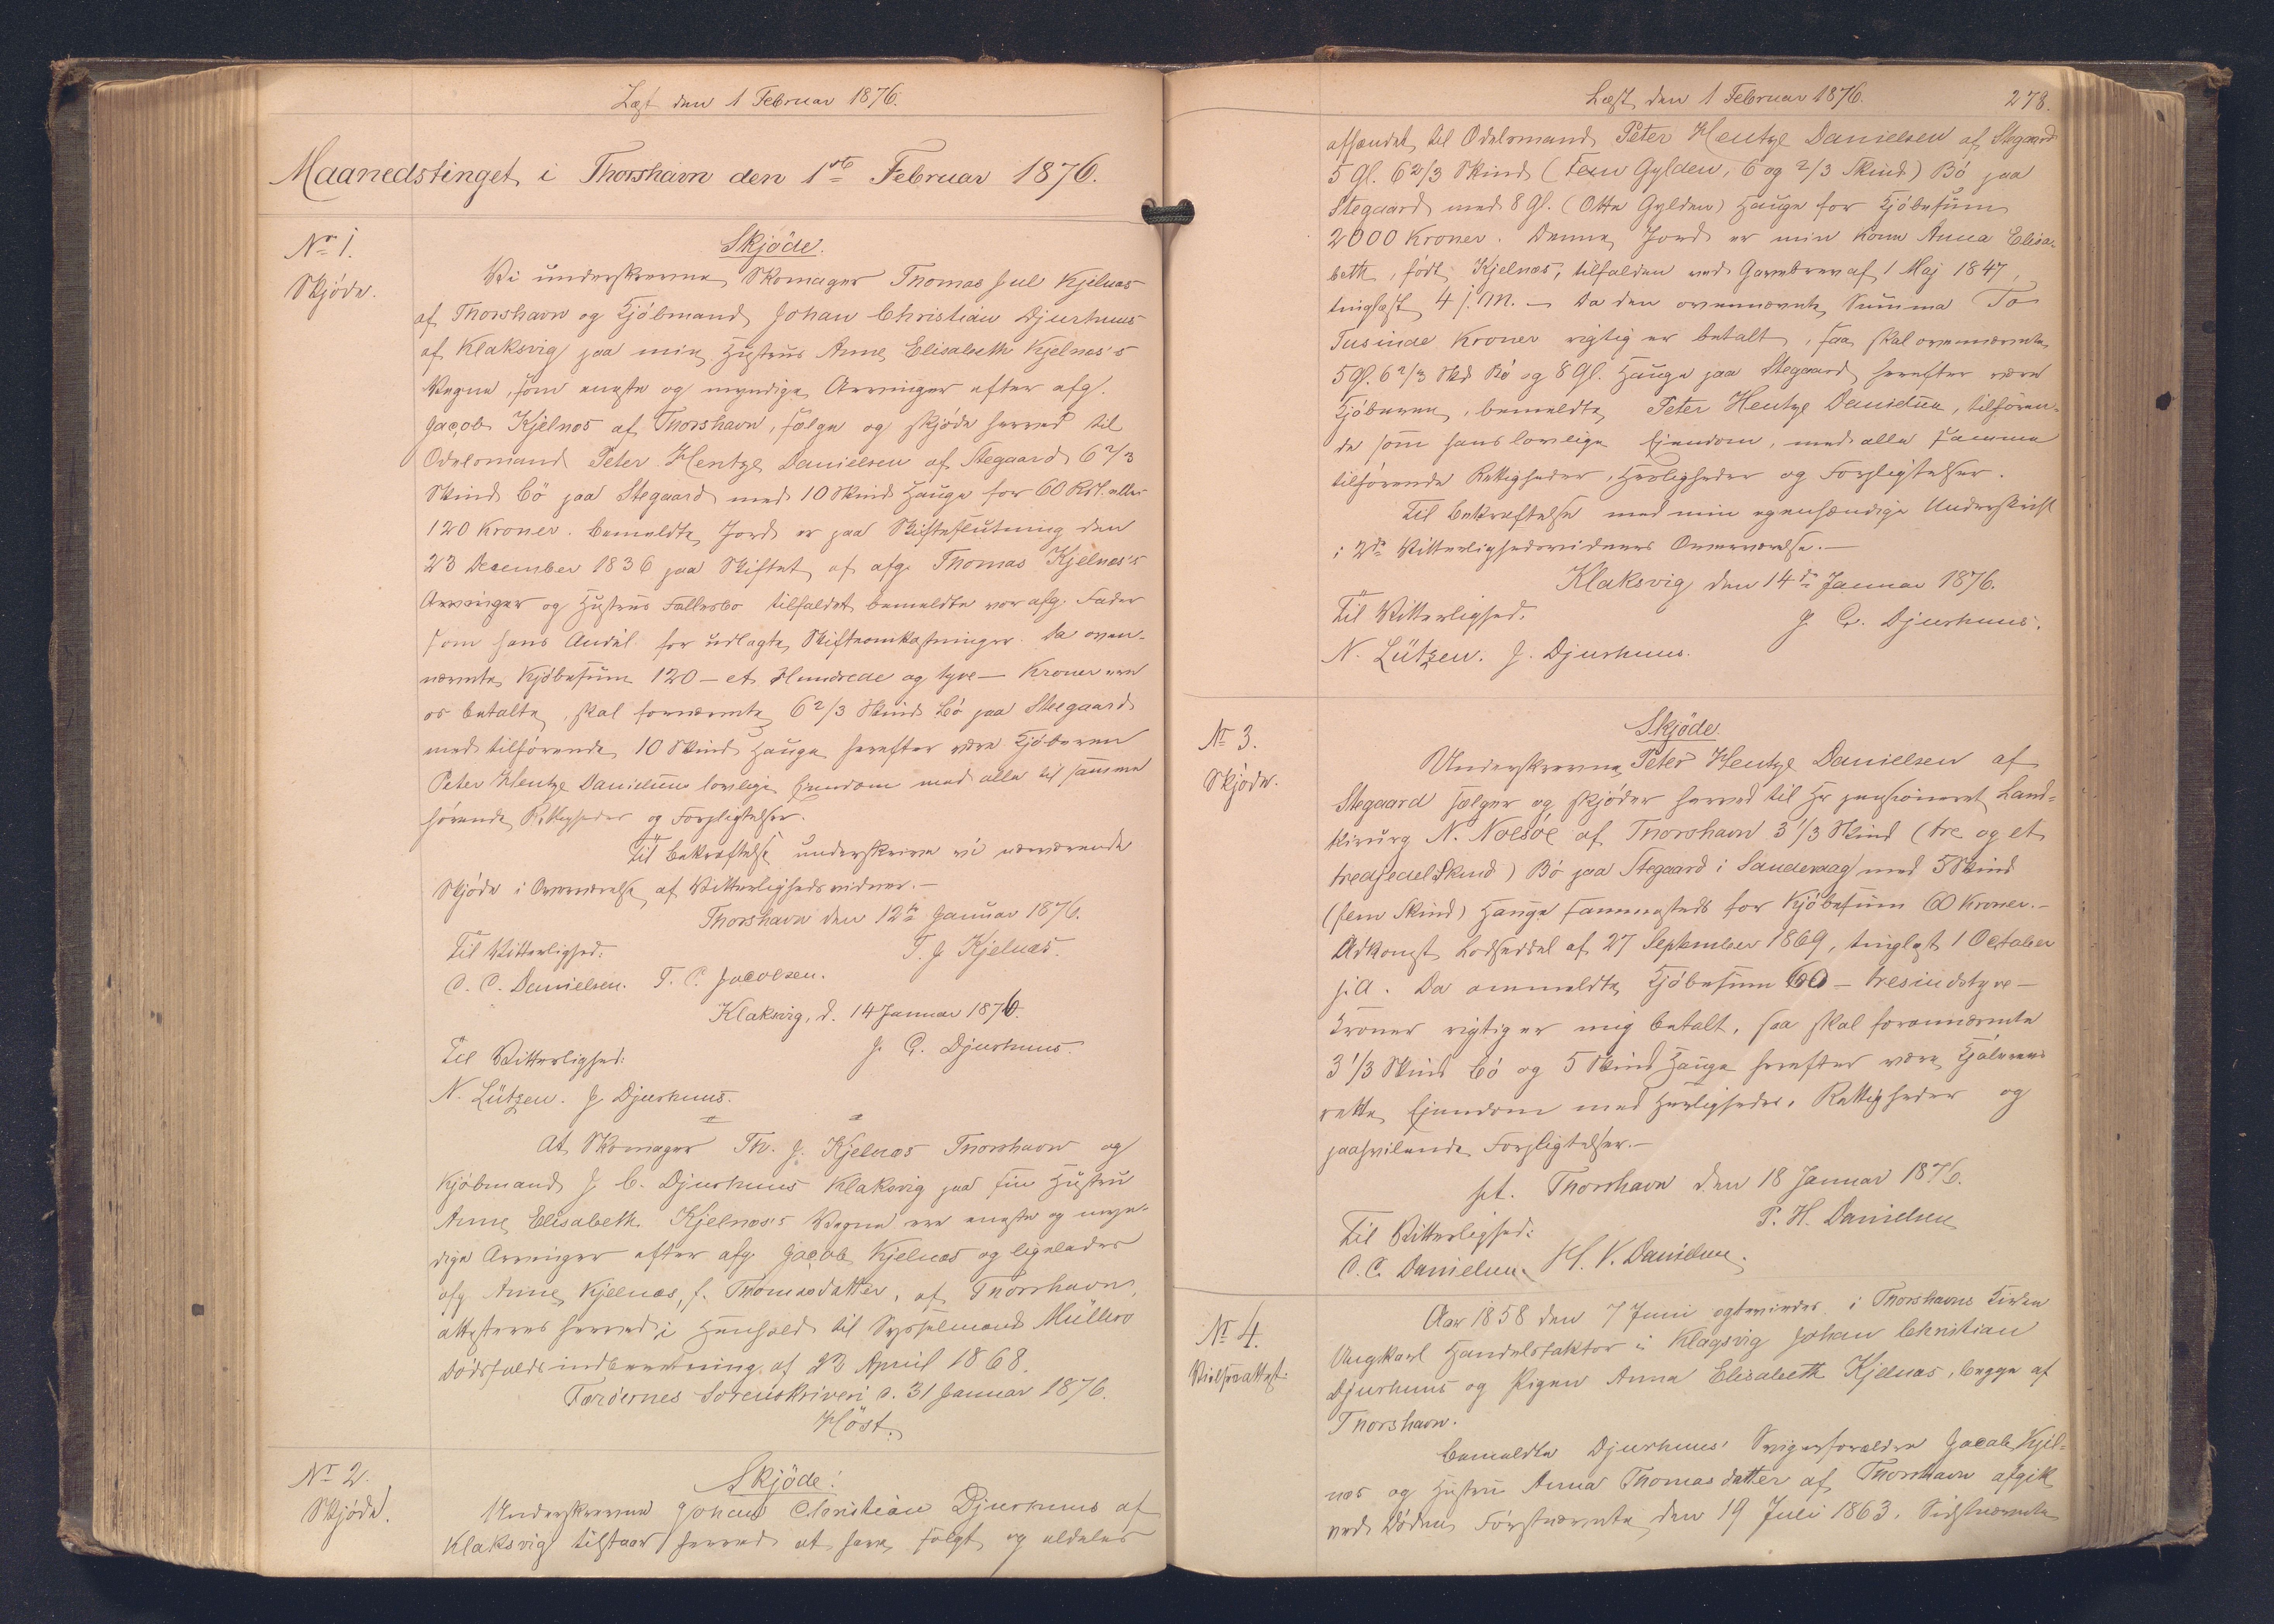 Læst den 1 Februar 1876.
Maanedstinget i Thorshavn den 1ste Februar 1876.
No 1.
Skjöde.
Skjöde.
Vi underskrevne Skomager Thomas Jul Kjelnæs
af Thorshavn og Kjöbmand Johan Christian Djurhuus
af Klaksvig paa min Hustrus Anne Elisabeth Kjelnæs's
Vegne, som eneste og myndige Arvinger efter afg.
Jacob Kjelnæs af Thorshavn, sælge og skjöde herved til
Odelsmand Peter Hentze Danielsen af Stegaard 6 2/3
Skind Bö paa Stegaard med 10 Skind Hauge for 60 Rdl. eller
120 Kroner. Bemeldte Jord er paa Skifteslutning den
23 December 1836 paa Skiftet af afg. Thomas Kjelnæs's
Arvinger og Hustrus Fællesbo tilfaldet bemeldte vor afg. Fader
som hans Andel for udlagte Skifteomkostninger. Da oven-
nævnte Kjöbesum 120 - et Hundrede og tyve - Kroner ere
os betalte, skal fornævnte 6 2/3 Skind Bö paa Stegaard
med tilhörende 10 Skind Hauge herefter være Kjöberen
Peter Hentze Danielsens lovlige Eiendom med alle til samme
hörende Rettigheder og Forpligtelser.
Til Bekræftelse underskrive vi nærværende
Skjöde i Overværelse af Vitterlighedsvidner.-
Thorshavn den 12te Januar 1876.
Til Vitterlighed:
T. J. Kjelnæs.
C. C. Danielsen. T. P. Jacobsen.
Klaksvig, d. 14 Januar 1876.
Til Vitterlighed:
J. C. Djurhuus.
N. Lützen. J. Djurhuus.
At Skomager Th. J. Kjelnæs Thorshavn og
Kjöbmand J. C. Djurhuus Klaksvig paa sin Hustru
Anne Elisabeth Kjelnæs's Vegne ere eneste og myn-
dige Arvinger efter afg. Jacob Kjelnæs og ligeledes
afg. Anne Kjelnæs, f. Thomasdatter, af Thorshavn,
attesteres herved i Henhold til Sysselmand Müllers
Dödsfaldsindberetning af 23 April 1868.
Færöernes Sorenskriveri d. 31 Januar 1876.
Höst.
No 2.
Skjöde.
Skjöde.
Underskrevne Johan Christian Djurhuus af
Klaksvig tilstaar herved at have solgt og aldeles
Læst den 1 Februar 1876.
278.
afhændet til Odelsmand Peter Hentze Danielsen af Stegaard
5 Gl. 6 2/3 Skind (Fem Gylden, 6 og 2/3 Skind) Bö paa
Stegaard med 8 Gl. (Otte Gylden) Hauge for Kjöbesum
2000 Kroner. Denne Jord er min Kone Anna Elisa-
beth, födt Kjelnæs, tilfalden ved Gavebrev af 1 Maj 1847,
tinglæst 4 s. M. - Da den ovennævnte Summa To
Tusinde Kroner rigtig er betalt, saa skal ovennævnte
5 Gl. 6 2/3 Skd Bö og 8 Gl. Hauge paa Stegaard herefter være
Kjöberen, bemeldte Peter Hentze Danielsen, tilhören-
de som hans lovlige Eiendom, med alle samme
tilhörende Rettigheder, Herligheder og Forpligtelser.
Til Bekræftelse med min egenhændige Underskrift
i 2de Vitterlighedsvidners Overværelse.-
Klaksvig den 14de Januar 1876.
Til Vitterlighed.
J. C. Djurhuus.
N. Lützen. J. Djurhuus.
No 3.
Skjöde.
Skjöde.
Underskrevne Peter Hentze Danielsen af
Stegaard sælger og skjöder herved til Hr pensioneret Land-
kirurg N. Nolsöe af Thorshavn 3 1/3 Skind (tre og et
tredjedel Skind) Bö paa Stegaard i Sandevaag med 5 Skind
(fem Skind) Hauge sammesteds for Kjöbesum 60 Kroner.-
Adkomst Lodseddel af 27 September 1869, tinglyst 1 October
s. A. Da anmeldte Kjöbesum 60 - tresindstyve -
Kroner rigtig er mig betalt, saa skal forannævnte
3 1/3 Skind Bö og 5 Skind Hauge herefter være Kjöberens
rette Eiendom med Herligheder, Rettigheder og
paahvilende Forpligtelser.-
pt. Thorshavn den 18 Januar 1876.
Til Vitterlighed:
P. H. Danielsen
C. C. Danielsen. H. V. Danielsen.
No 4.
Vielsesattest.
Aar 1858 den 7 Juni ægtevindes i Thorshavns Kirke
Ungkarl Handelsfaktor i Klagsvig Johan Christian
Djurhuus og Pigen Anna Elisabeth Kjelnæs, begge af
Thorshavn.
Bemeldte Djurhuus' Svigerforældre Jacob Kjel-
næs og Hustru Anna Thomasdatter af Thorshavn afgik
ved Döden, Förstnævnte den 19 Juli 1863, Sidstnævnte